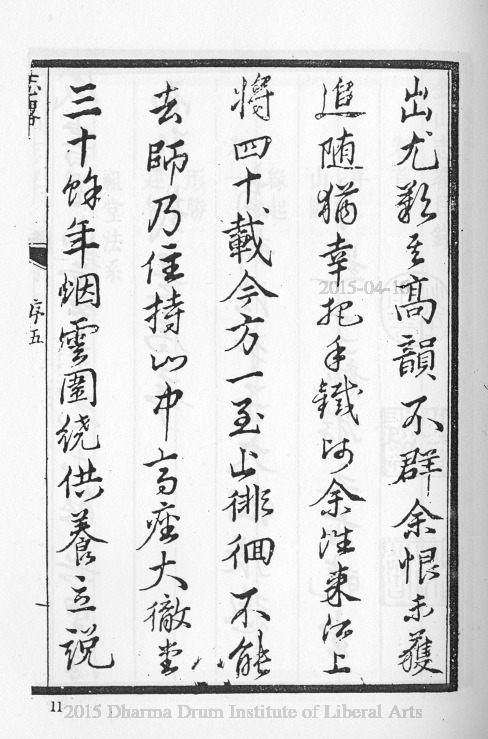 出尤歎其高韻不群余恨未獲
追隨猶幸把手鐵時余淮東江上
將四十載今方一至山徘徊不能
去師乃住持山中高座大徹堂
三十餘年烟雲圍繞供養立説
志畧
序五
2015-04-16
11
2015 Dharma Drum Institute of Liberal Arts